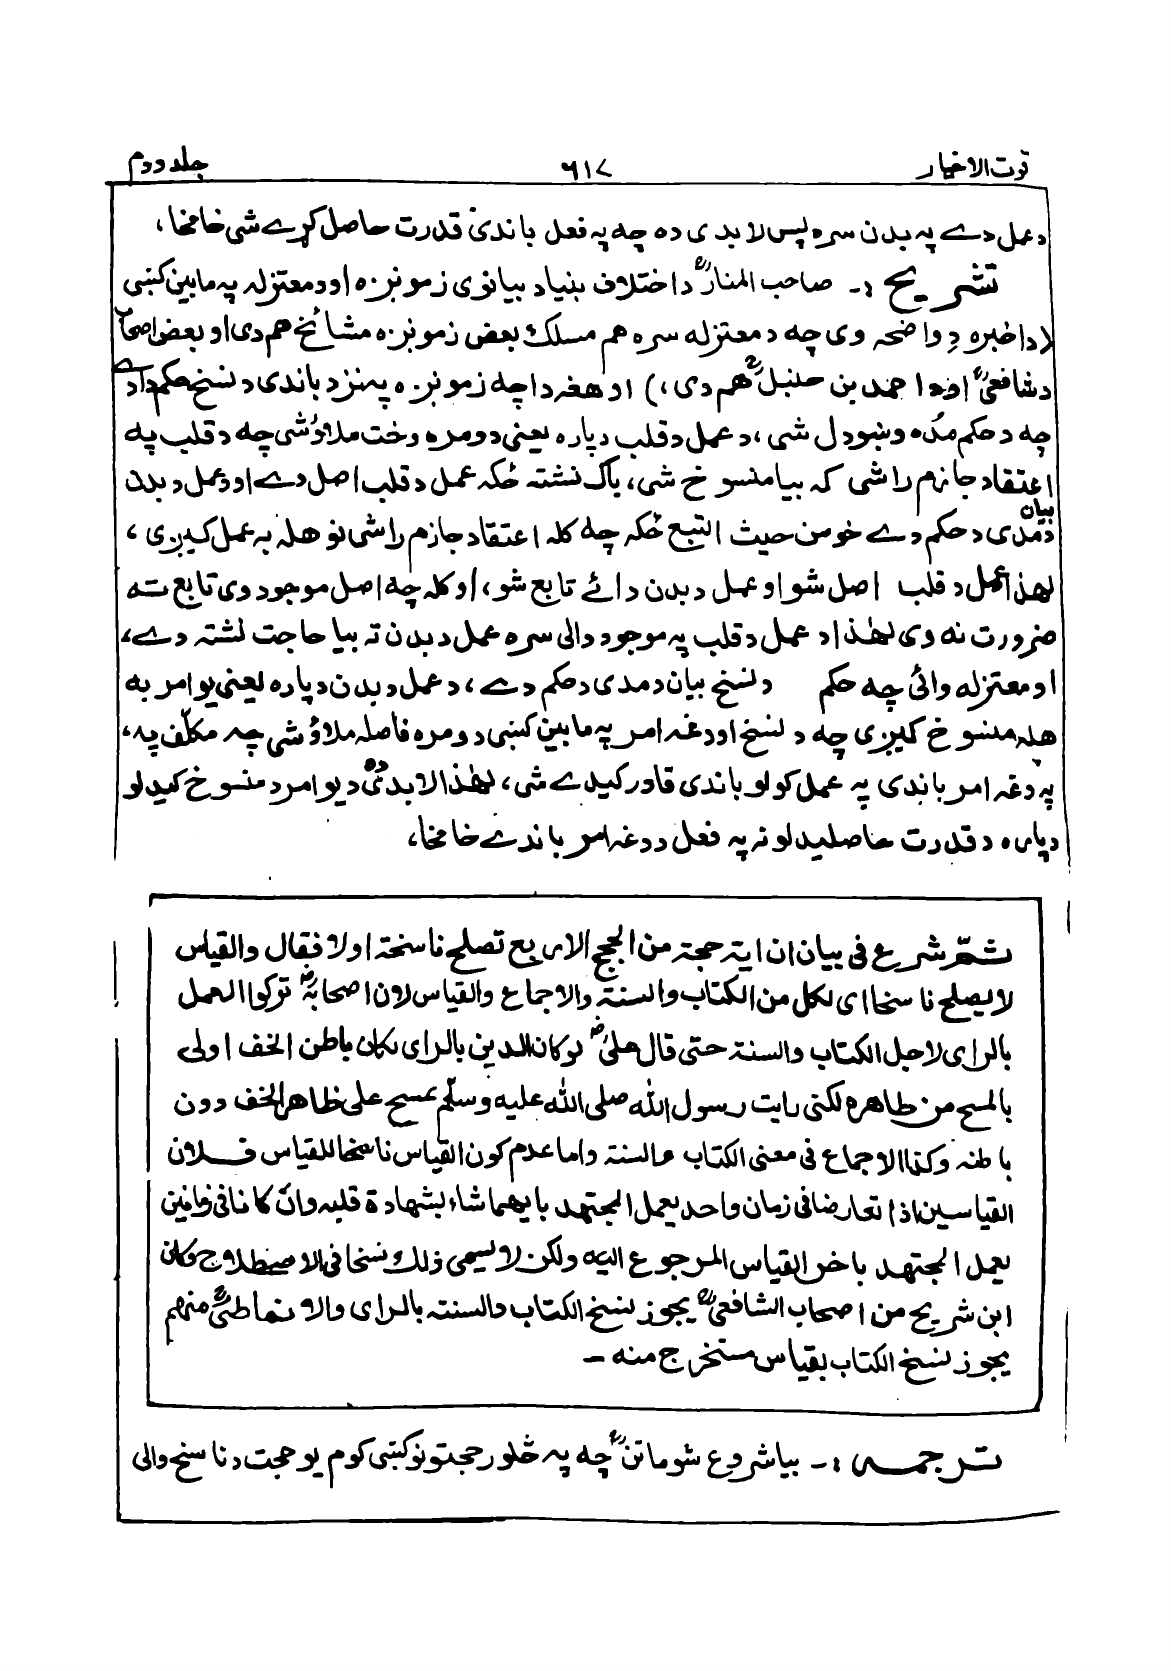 قوت الاخیار ۶۱۷ جلد دوم
د عمل دے په بدن سره پس لابدی ده چه په فعل باندی قدرت حاصل کړے شی خامخا،
تشریح :۔ صاحب المنارؒ د اختلاف بنیاد بیانوی زمونږه او د معتزله په مابین کښی
لا دا خبره دِ واضحه وی چه د معتزله سره هم مسلک بعض زمونږه مشائخ هم دی او بعض اصحاب
د شافعیؒ او د احمد بن حنبلؒ هم دی،) او هغه دا چه زمونږه په نزد باندی د نسخ حکم دادے
چه د حکم مده وښودل شی، د عمل د قلب دپاره یعنی دومره وخت ملاؤشی چه د قلب په
اعتقاد جازم راشی که بیا منسوخ شی، باک نشته ځکه عمل د قلب اصل دے او د عمل د بدن
بیان دمدی د حکم دے خو من حیث التبع ځکه چه کله اعتقاد جازم راشی نو هله به عمل کیږی،
لهذا عمل د قلب اصل شو او عمل د بدن دائے تابع شو، او کله چه اصل موجود وی تابع ته
ضرورت نه وی لهٰذا د عمل د قلب په موجود والی سره عمل د بدن ته بیا حاجت نشته دے،
او معتزله وائی چه حکم د نسخ بیان د مدی د حکم دے، د عمل د بدن دپاره یعنی یو امر به
هله منسوخ کیږی چه د نسخ او دغه امر په مابین کښی دومره فاصله ملاؤ شی چه مکلّف په،
په دغه امر باندی په عمل کولو باندی قادر کیدے شی، لهٰذا لابدی ده د یو امر د منسوخ کیدلو
دپاره د قدرت حاصلیدلو نه په فعل د دغه امر باندے خامخا،
ثمّ شرع فی بیان ان ایة حجة من الحجج الاربع تصلح ناسخة اولا فقال والقیاس
لا یصلح ناسخا ای لکل من الکتاب والسنة والاجماع والقیاس لان اصحابهؓ ترکوا العمل
بالرای لاجل الکتاب والسنة حتی قال علیؓ لو کان الدین بالرای لکان باطن الخف اولی
بالمسح من ظاهره لکنی رایت رسول الله صلی الله علیه وسلّم یمسح علی ظاهر الخف دون
باطنه وکذا الاجماع فی معنی الکتاب والسنة واما عدم کون القیاس ناسخا للقیاس فلان
القیاسین اذا تعارضا فی زمان واحد یعمل المجتهد بایهما شاء بشهادة قلبه وان کانا فی زمانین
یعمل المجتهد باخر القیاس المرجوع الیه ولکن لا یسمی ذلك نسخا فی الاصطلاح وکان
ابن شریح من اصحاب الشافعیؒ یجوز نسخ الکتاب والسنة بالرای والانماطیؒ منهم
یجوز نسخ الکتاب بقیاس مستخرج منه ۔
ترجمه :۔ بیا شروع شو ماتنؒ چه په څلور حجتونو کښی کوم یو حجت د ناسخ والی